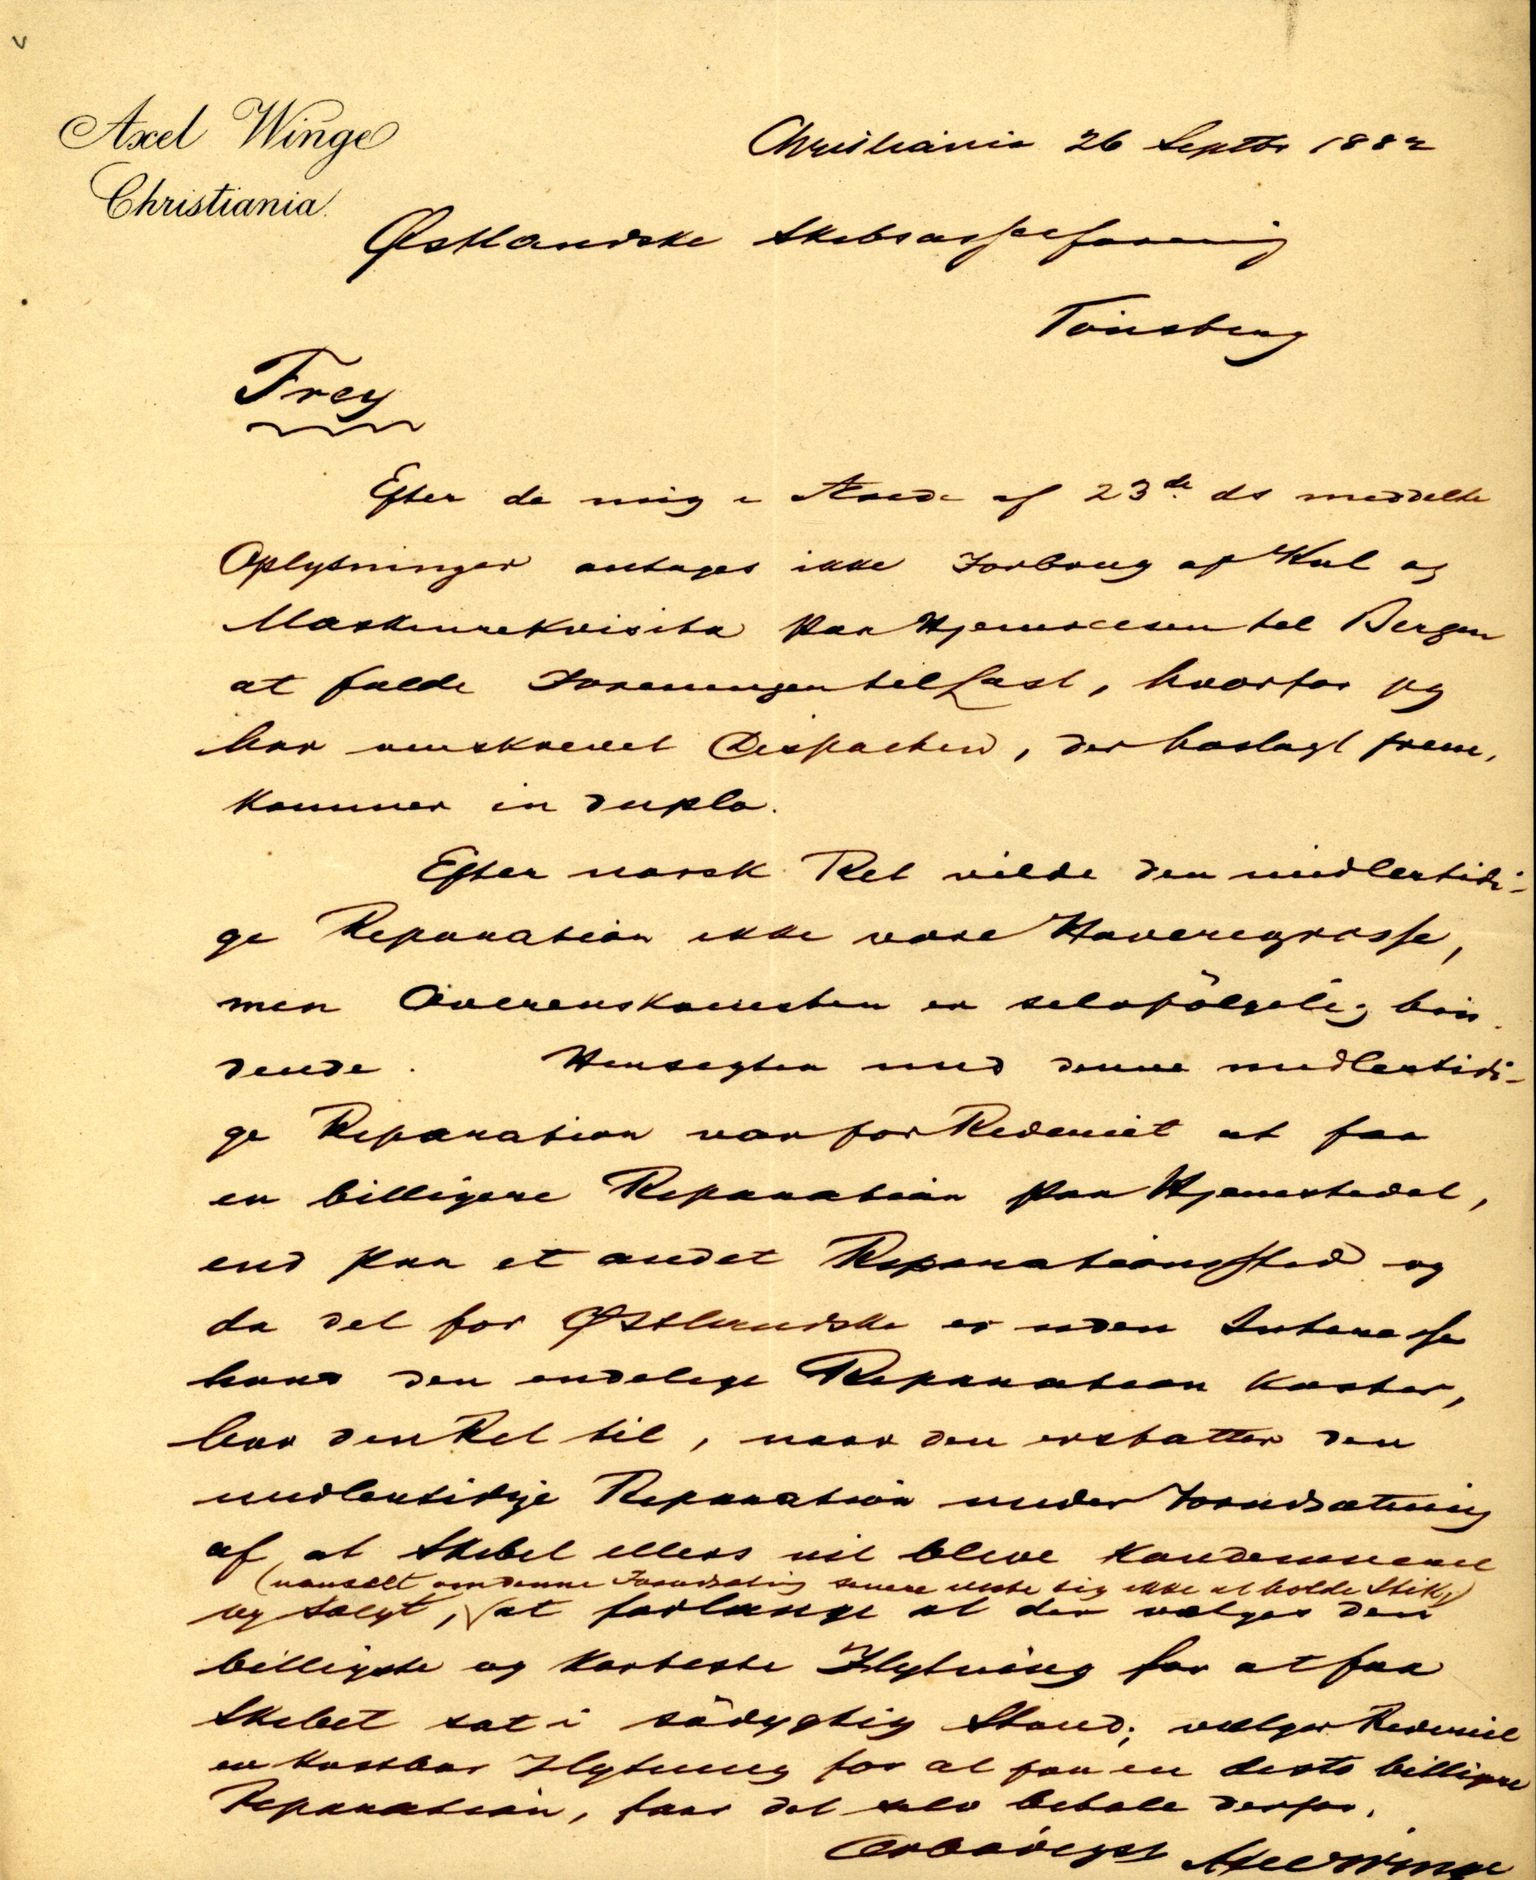 Axel Winge
Christiania.
Christiania 26 Septbr 1882
Østlandske Skibsassceforening
Tönsberg
Frey
Efter de mig i Ærede af 23de ds meddelte
Oplysninger antages ikke Forbrug af Kul og
Maskinrekvisita paa Hjemreisen til Bergen
at falde Foreningen til Last, hvorfor jeg
har omskrevet Dispachen, der hoslagt frem-
kommer in duplo.
Efter norsk Ret vilde den midlertidi-
ge Reparation ikke være Havarigrosse,
men Overenskomsten er selvfölgelig bin-
dende. Hensigten med denne midlertidi-
ge Reparation var for Rederiet at faa
en billigere Reparation paa Hjemstedet,
end paa et andet Reparationssted og
da det for Østlandske er uden Interesse
hvad den endelige Reparation koster,
har den Ret til, naar den erstatter den
midlertidige Reparation under Forudsætning
af, at Skibet ellers vil blive kondemneret
(uanseet om denne Forudsætning senere viste sig ikke at holde Stik)
og solgt, at forlange at der vælges den
billigste og korteste Flytning for at faa
Skibet sat i södygtig Stand; vælger Rederiet
en kostbar Flytning for at faa en desto billigere
Reparation, faar det selv betale derfor.
Ærbödigst Axel Winge